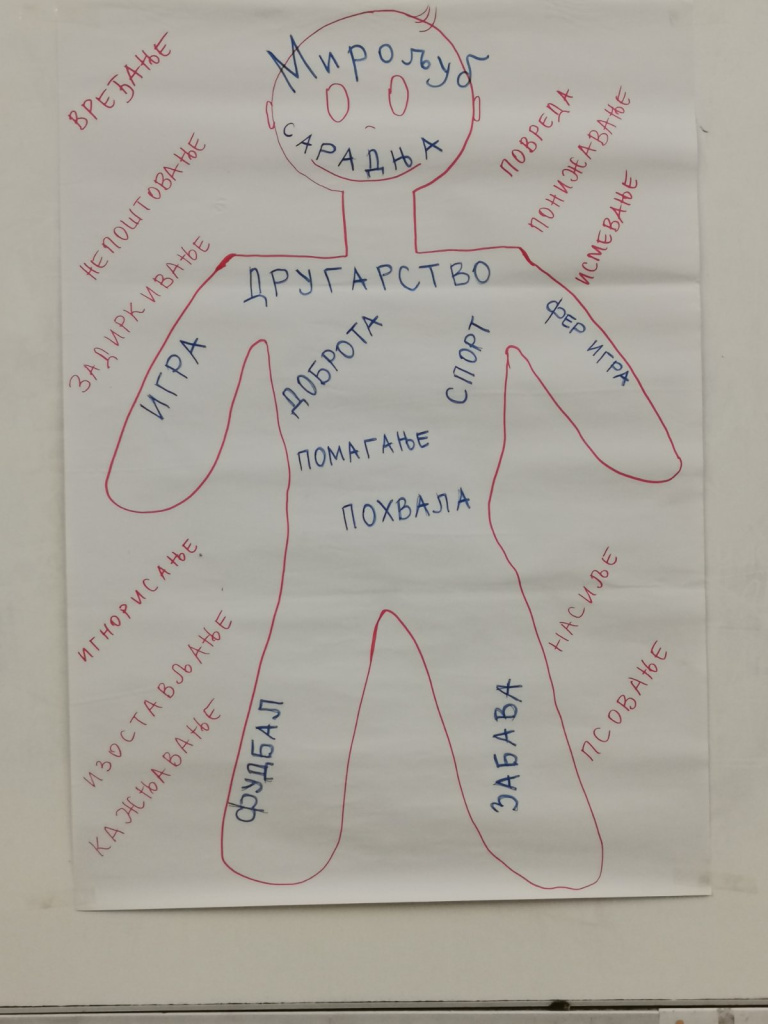 Мирољуб
САРАДЊА
ВРЕЂАЊЕ
НЕПОШТОВАЊЕ
ЗАДИРКИВАЊЕ
ПОВРЕДА
ПОНИЖАВАЊЕ
ИСМЕВАЊЕ
ДРУГАРСТВО
ИГРА
ДОБРОТА
СПОРТ
ФЕР ИГРА
ПОМАГАЊЕ
ПОХВАЛА
ИГНОРИСАЊЕ
ИЗОСТАВЉАЊЕ
КАЖЊАВАЊЕ
НАСИЉЕ
ПСОВАЊЕ
ФУДБАЛ
ЗАБАВА